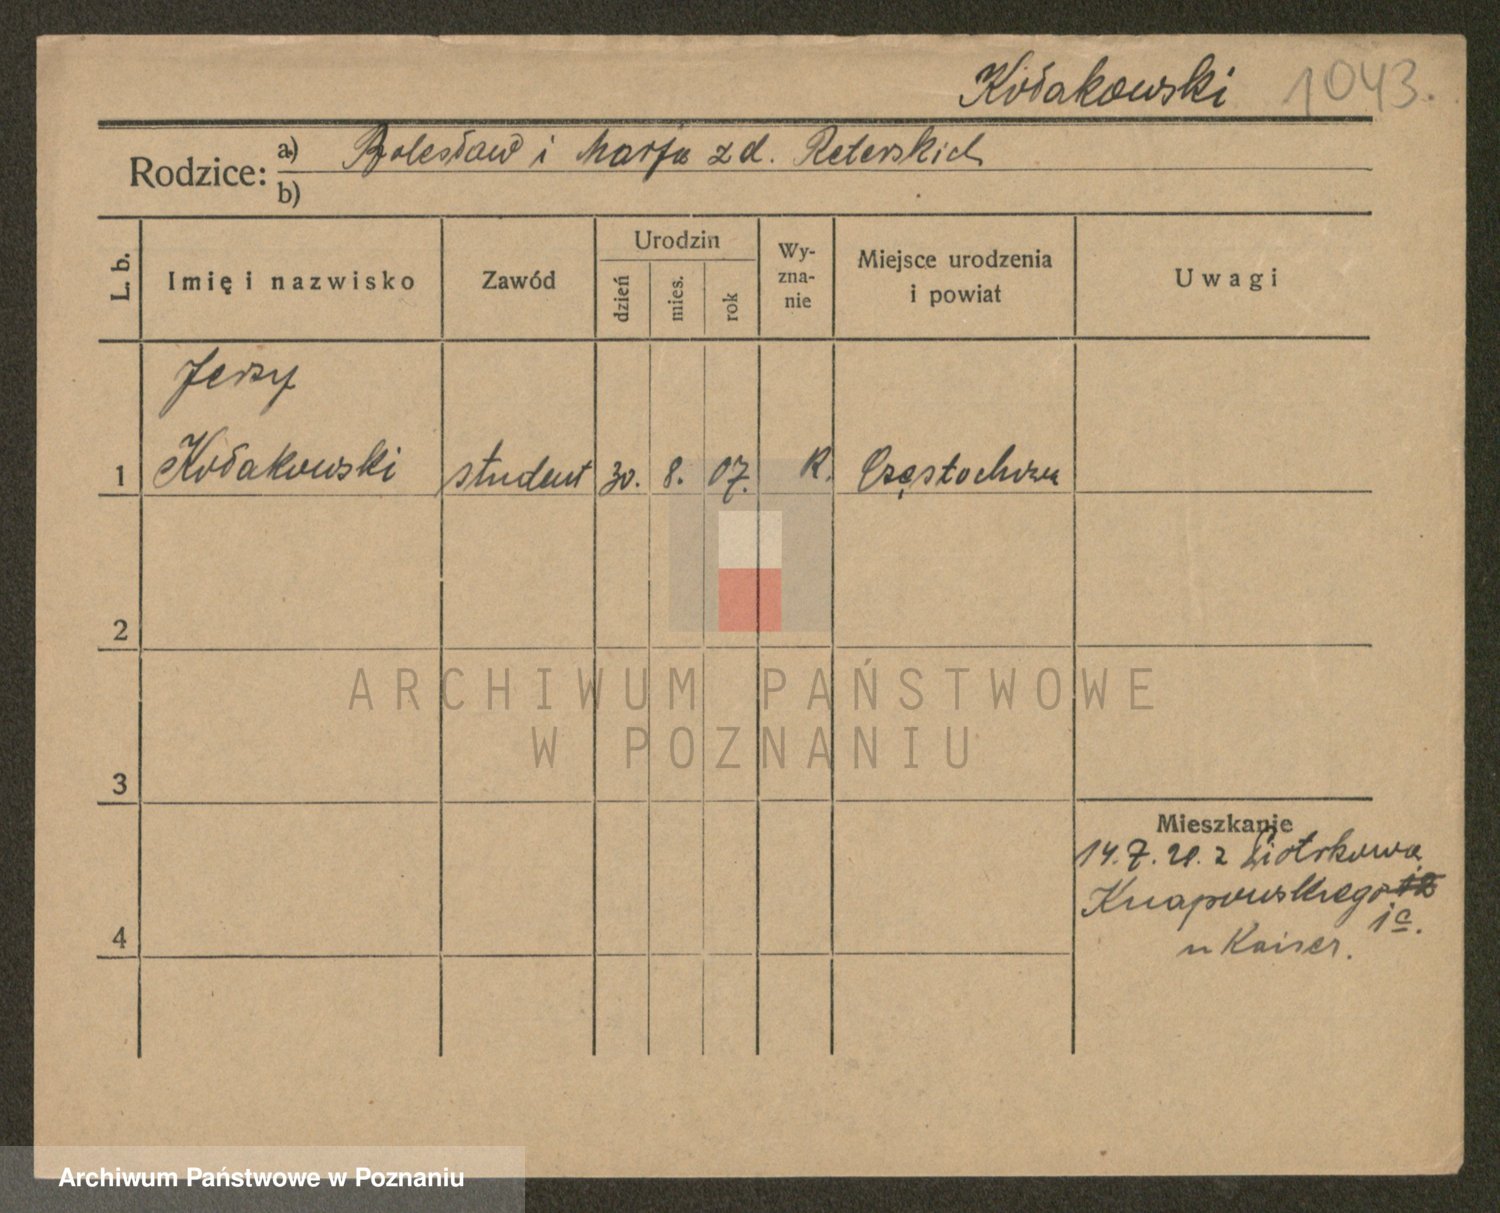 Kołakowski 1043.
Rodzice: a) Bolesław i Marja z d. Reterskich
b)
L. b. Imię i nazwisko Zawód Urodzin dzień mies. rok Wy-zna-nie Miejsce urodzenia i powiat Uwagi
Jerzy
1 Kołakowski student 30. 8. 07. R. Częstochowa
2
3
Mieszkanie
14.7.28. z Piotrkowa
Knapowskiego
1c.
4
u Kaiser.
ARCHIWUM PAŃSTWOWE
W POZNANIU
Archiwum Państwowe w Poznaniu